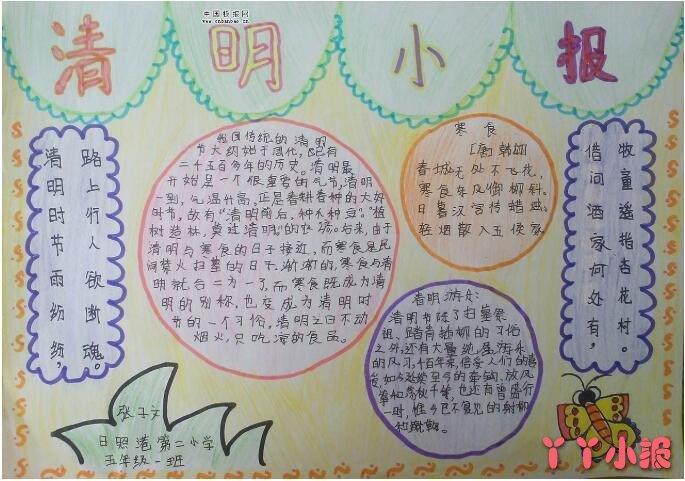 中国板报网
www.cnbanbao.cn
清明小报
清明时节雨纷纷，
路上行人欲断魂。
我国传统的清明
节大约始于周代，已有
二千五百多年的历史。清明最
开始是一个很重要的节气，清明
一到，气温升高，正是春耕春种的大好
时节，故有“清明前后，种瓜种豆”。“植
树造林，莫过清明”的农谚。后来，由于
清明与寒食的日子接近，而寒食是民
间禁火扫墓的日子，渐渐的，寒食与清
明就合二为一了，而寒食既成为清
明的别称，也变成为清明时
节的一个习俗，清明之日不动
烟火，只吃凉的食品。
寒食
［唐］韩翃
春城无处不飞花，
寒食东风御柳斜。
日暮汉宫传蜡烛，
轻烟散入五侯家
借问酒家何处有，
牧童遥指杏花村。
清明
清明节除了扫墓祭
祖、踏青插柳的习俗
之外，还有大量
的风习，千百年来，
放风
筝和荡秋千等，也还有曾盛行
一时，惟今已不复见的射柳
和蹴鞠。
张子文
日照港第二小学
五年级一班
丫丫小报